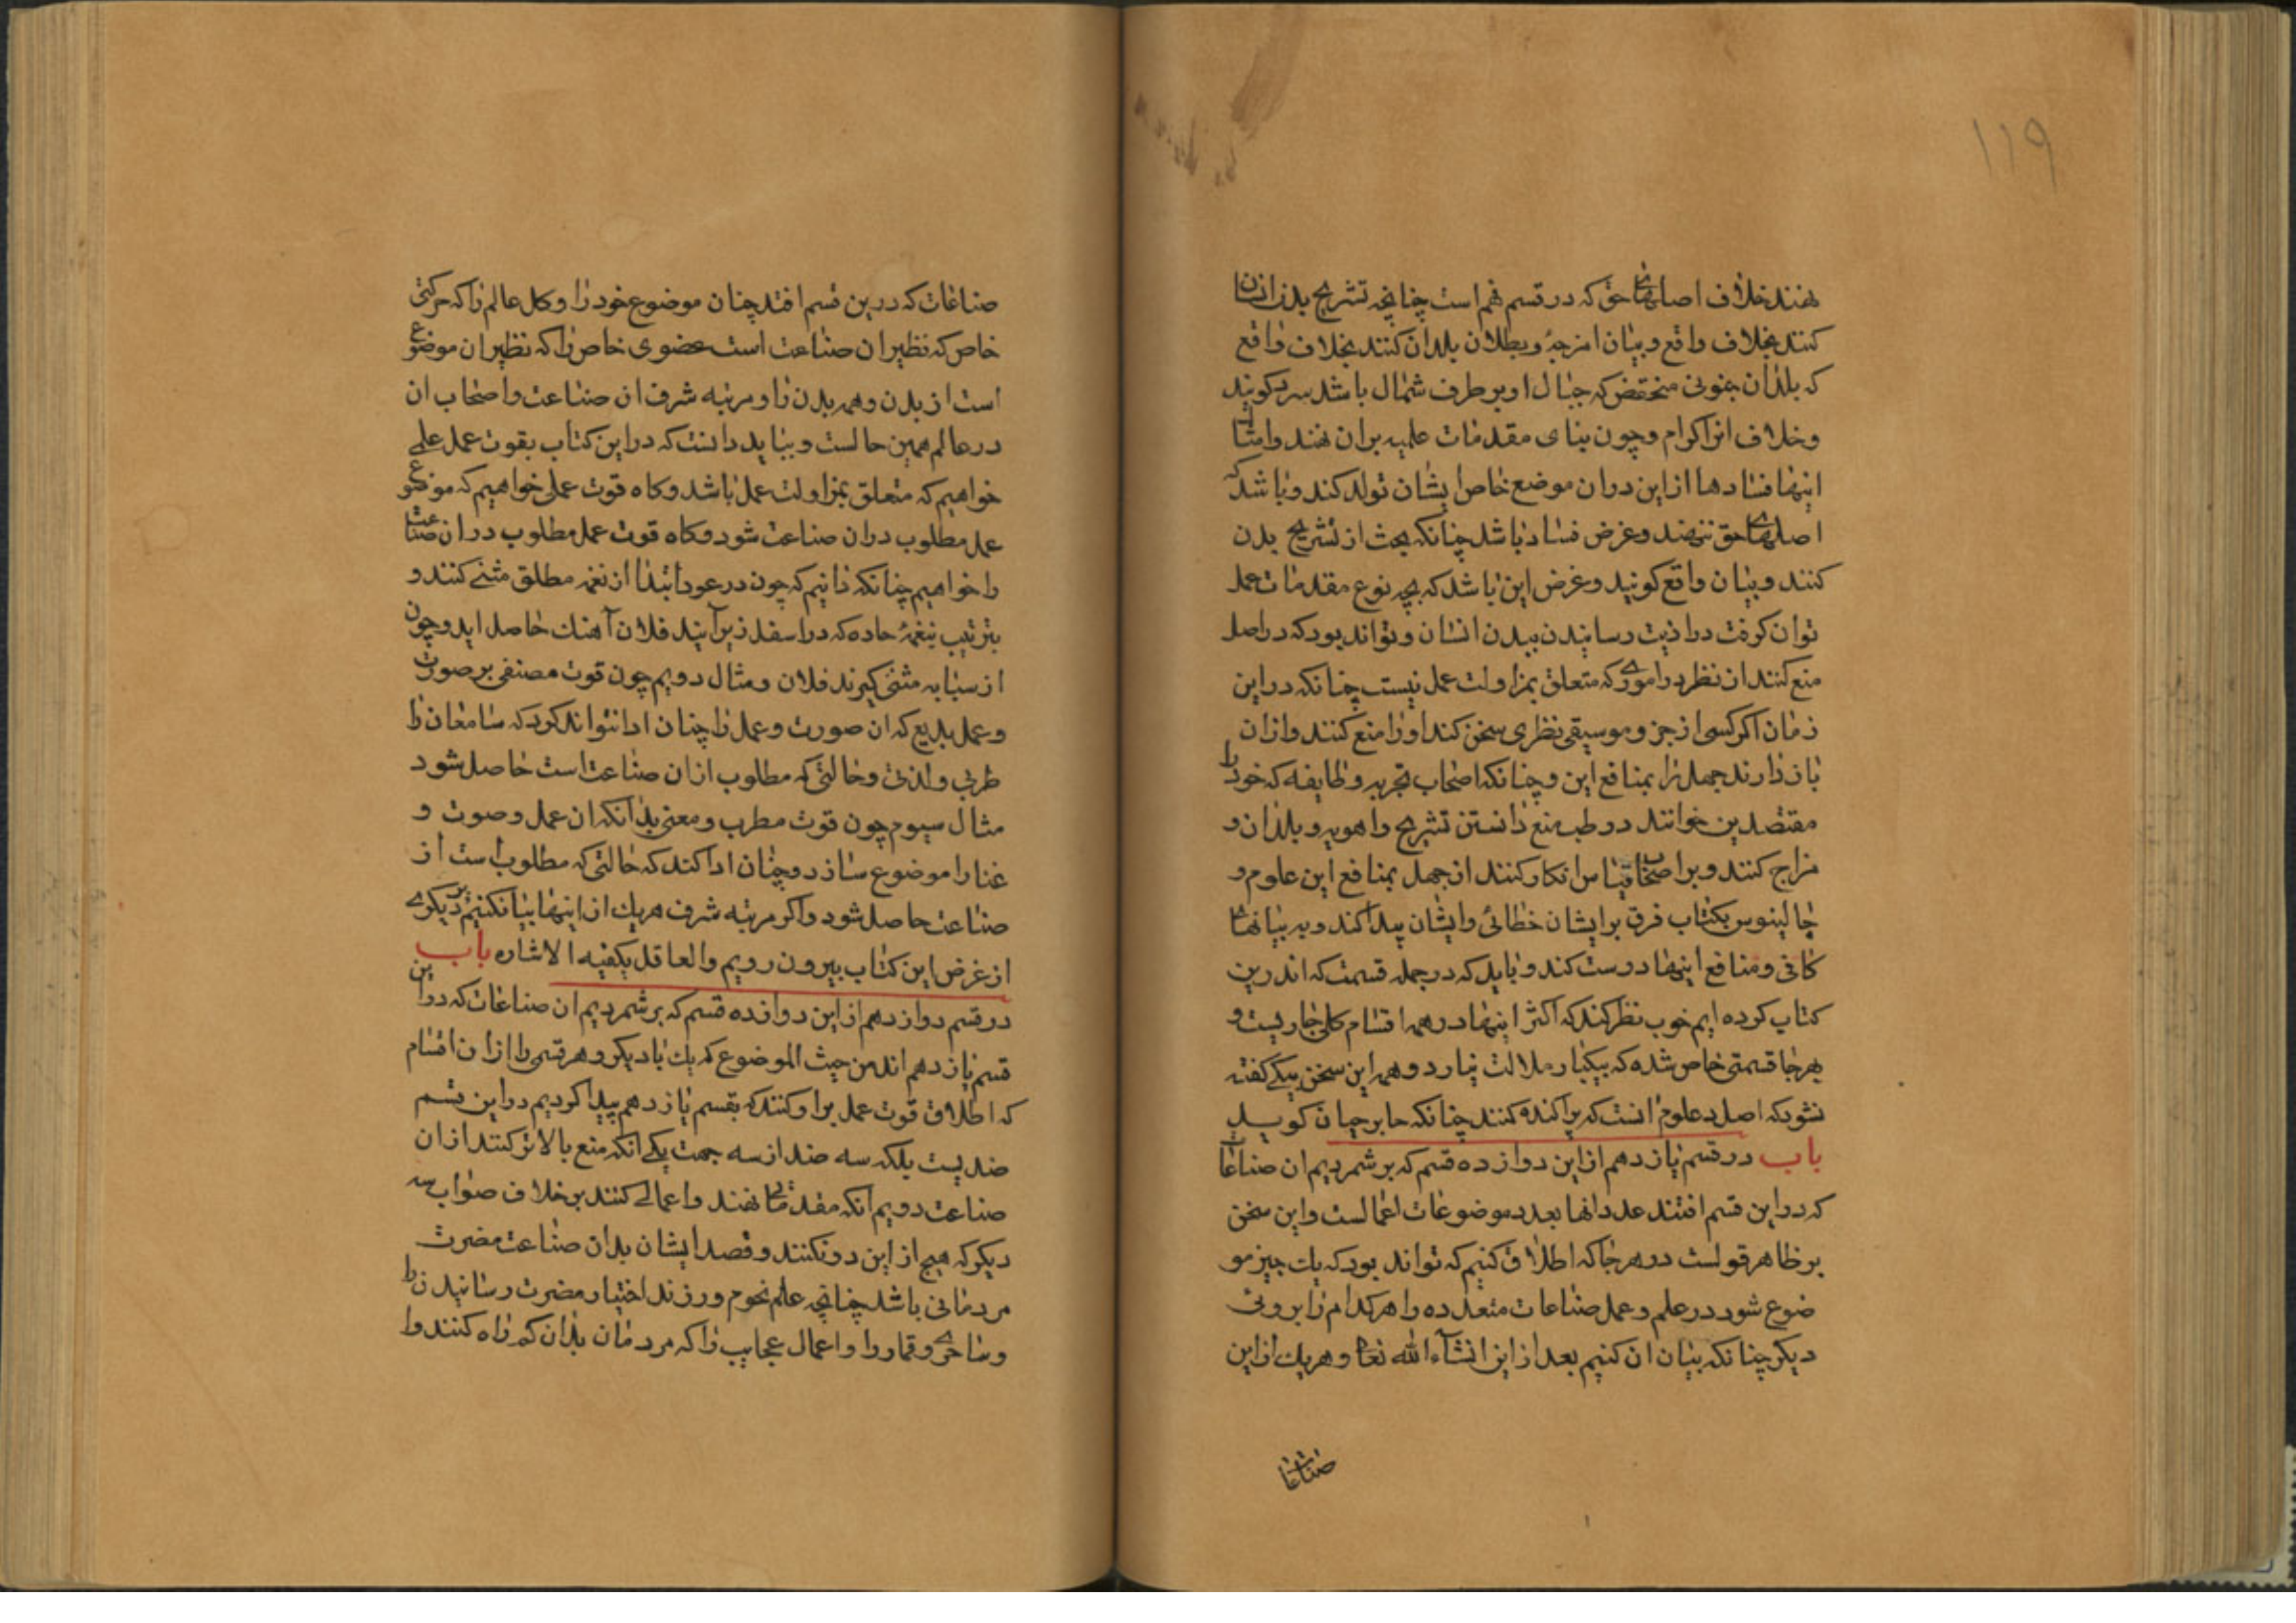 ۱۱۹
نهند خلاف اصلهای حق که در قسم نهم است چنانچه تشریح بدن انسان
کنند بخلاف واقع و بیان امزجهٔ و بطلان بلدان کنند بخلاف واقع
که بلدان جنوبی منخفض که جبال او بر طرف شمال باشد سرد کویند
و خلاف انرا کرام و چون بنای مقدمات علمیه بران نهند و امثال
اینها فسادها از این دران موضع خاص ایشان تولد کند و باشد که
اصلهای حق ننهند و غرض فساد باشد چنانکه بحث از تشریح بدن
کنند و بیان واقع کویند و غرض این باشد که بچه نوع مقدمات عمل
توان کرفت در اذیت رسانیدن ببدن انسان و تواند بود که در اصل
منع کنند از نظر در اموری که متعلق بمزاولت عمل نیست چنانکه در این
زمان اکر کسی از جز و موسیقی نظری سخن کند او را منع کنند و ازان
باز دارند جهل را بمنافع این و چنانکه اصحاب تجربه و طایفه که خود را
مقتصدین خوانند در طب منع دانستن تشریح و اهویه و بلدان و
مزاج کنند و بر اصحاب قیاس انکار کنند از جهل بمنافع این علوم و
جالینوس بکتاب فرق بر ایشان خطائی و ایشان پیدا کند و به بیانهای
کافی و منافع اینها درست کند و باید که در جمله قسمت که اندرین
کتاب کرده ایم خوب نظر کند که اکثر اینها در همه اقسام کلی جاریست و
بهرجا قسمتی خاص شده که بیکبار ملالت نیارد و همه این سخن بیکی کفته
نشود که اصل در علوم انست که پراکنده کنند چنانکه جابر حیان کوید
باب در قسم یازدهم از این دوازده قسم که برشمردیم ان صناعات
که در این قسم افتند عدد انها بعدد موضوعات اعمالست و این سخن
بر ظاهر قولست در هر جا که اطلاق کنیم که تواند بود که یک چیز مو
ضوع شود در علم و عمل صناعات متعدده را هر کدام را بروئی
دیکر چنانکه بیان ان کنیم بعد از این انشآء الله تعالی و هر یک از این
صناعات
صناعات که درین قسم افتد چنان موضوع خود را و کل عالم را که حرکتی
خاص که نظیر ان صناعت است عضوی خاص را که نظیر ان موضوع
است از بدن و همه بدن را و مرتبه شرف ان صناعت و اصحاب ان
در عالم همین حالست و بباید دانست که در این کتاب بقوت عمل علمی
خواهیم که متعلق بمزاولت عمل باشد و کاه قوت عملی خواهیم که موضوع
عمل مطلوب دران صناعت شود و کاه قوت عمل مطلوب دران صناعت
را خواهیم چنانکه دانیم که چون در عود ابتدا از نغمه مطلق مثنی کنند و
بترتیب بنغمهٔ حاده که در اسفل زیر آیند فلان آهنک حاصل اید و چون
از سبابه مثنی کیرند فلان و مثال دویم چون قوت مصنفی بر صوت
و عمل بدیع که ان صورت و عمل را چنان ادا نتواند کرد که سامعان را
طربی و لذتی و حالتی که مطلوب ازان صناعت است حاصل شود
مثال سیوم چون قوت مطرب و مغنی بدانکه ان عمل و صوت و
غنا را موضوع سازد و چنان ادا کند که حالتی که مطلوب است از
صناعت حاصل شود و اکر مرتبه شرف هر یک از اینها بیان کنیم بر دیکری
از غرض این کتاب بیرون رویم و العاقل یکفیه الاشاره باب
در قسم دوازدهم از این دوازده قسم که برشمردیم ان صناعات که در این
قسم یازدهم اند من حیث الموضوع که یک با دیکر و هر قسمی را ازان اقسام
که اطلاق قوت عمل براو کنند که بقسم یازدهم پیدا کردیم در این قسم
ضدیست بلکه سه ضد از سه جهت یکی انکه منع بالاتر کنند ازان
صناعت دویم انکه مقدماتی نهند و اعمالی کنند بر خلاف صواب سه
دیکر که هیچ از این دو نکنند و قصد ایشان بدان صناعت مضرت
مردمانی باشد چنانچه علم نجوم ورزند اختیار مضرت رسانیدن را
و ساحری و قمار را و اعمال عجایب را که مردمان بدان کم راه کنند و